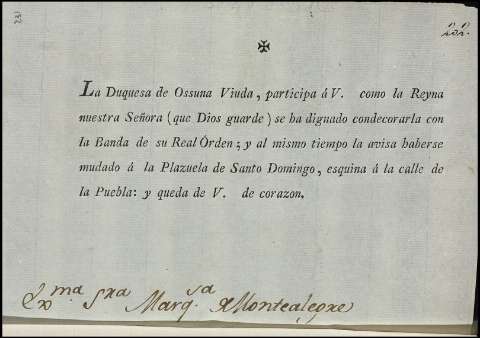 ✠
La Duquesa de Ossuna Viuda, participa á V. como la Reyna
nuestra Señora (que Dios guarde) se ha dignado condecorarla con
la Banda de su Real Órden; y al mismo tiempo la avisa haberse
mudado á la Plazuela de Santo Domingo, esquina á la calle de
la Puebla: y queda de V. de corazon.
Exma Sra Marqsa de Montealegre